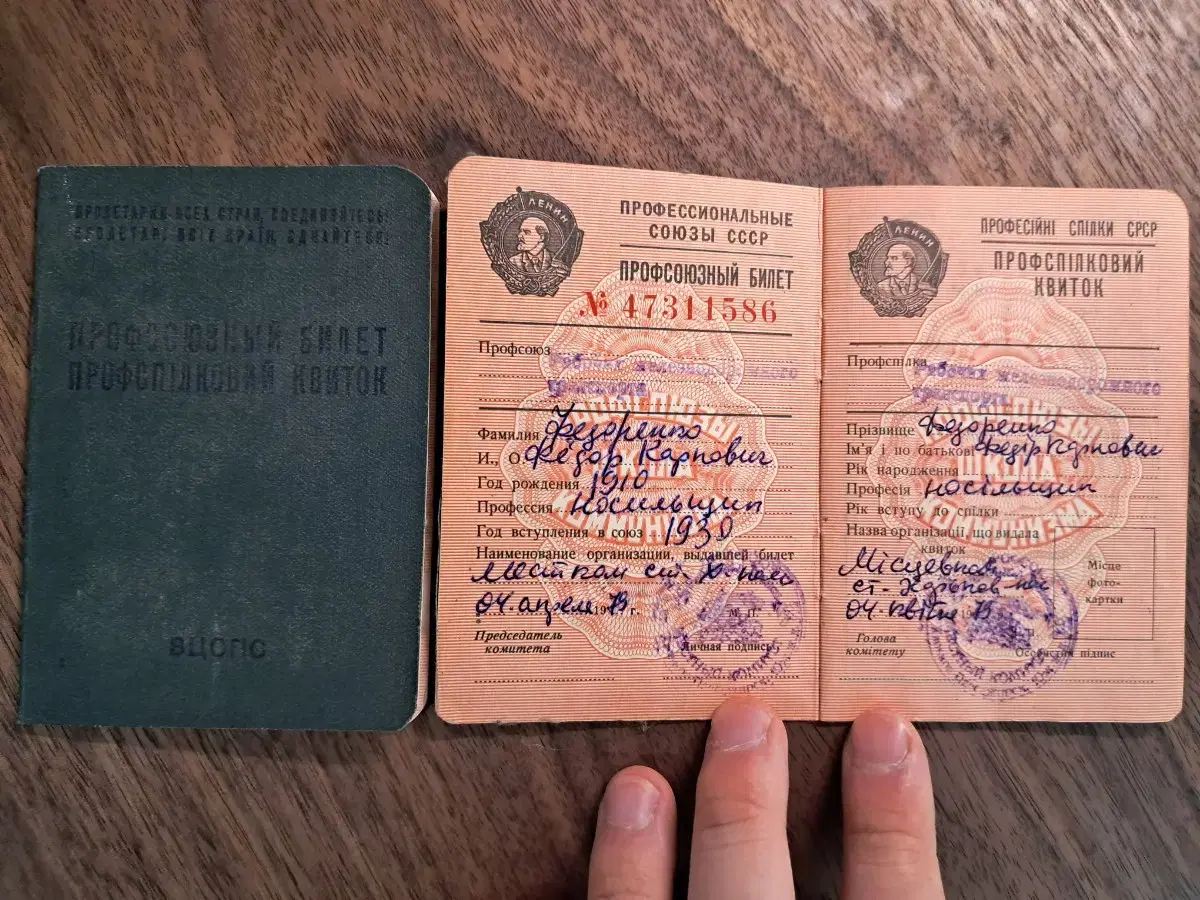 ПРОЛЕТАРИИ ВСЕХ СТРАН, СОЕДИНЯЙТЕСЬ!
ПРОЛЕТАРІ ВСІХ КРАЇН, ЄДНАЙТЕСЯ!
ПРОФСОЮЗНЫЙ БИЛЕТ
ПРОФСПІЛКОВИЙ КВИТОК
ВЦСПС
ЛЕНИН
ПРОФЕССИОНАЛЬНЫЕ
СОЮЗЫ СССР
ПРОФСОЮЗНЫЙ БИЛЕТ
№ 47311586
Профсоюз рабочих железнодорожного
транспорта
Фамилия Федоренко
И., О. Федор Карпович
Год рождения 1910
Профессия носильщик
Год вступления в союз 1930
Наименование организации, выдавшей билет
Местком ст.
04 апреля 1973 г.
М. П.
Председатель
комитета
Личная подпись
ПРОФСОЮЗЫ
ШКОЛА
КОММУНИЗМА
ЛЕНИН
ПРОФЕСІЙНІ СПІЛКИ СРСР
ПРОФСПІЛКОВИЙ
КВИТОК
Профспілка рабочих железнодорожного
транспорта
Прізвище Федоренко
Ім'я і по батькові Федір Карпович
Рік народження
Професія носільщик
Рік вступу до спілки
Назва організації, що видала
квиток
Місцевком
ст. Харьков
04 квітня 73
Місце
фото-
картки
Голова
комітету
Особистий підпис
ПРОФСОЮЗЫ
ШКОЛА
КОММУНИЗМА